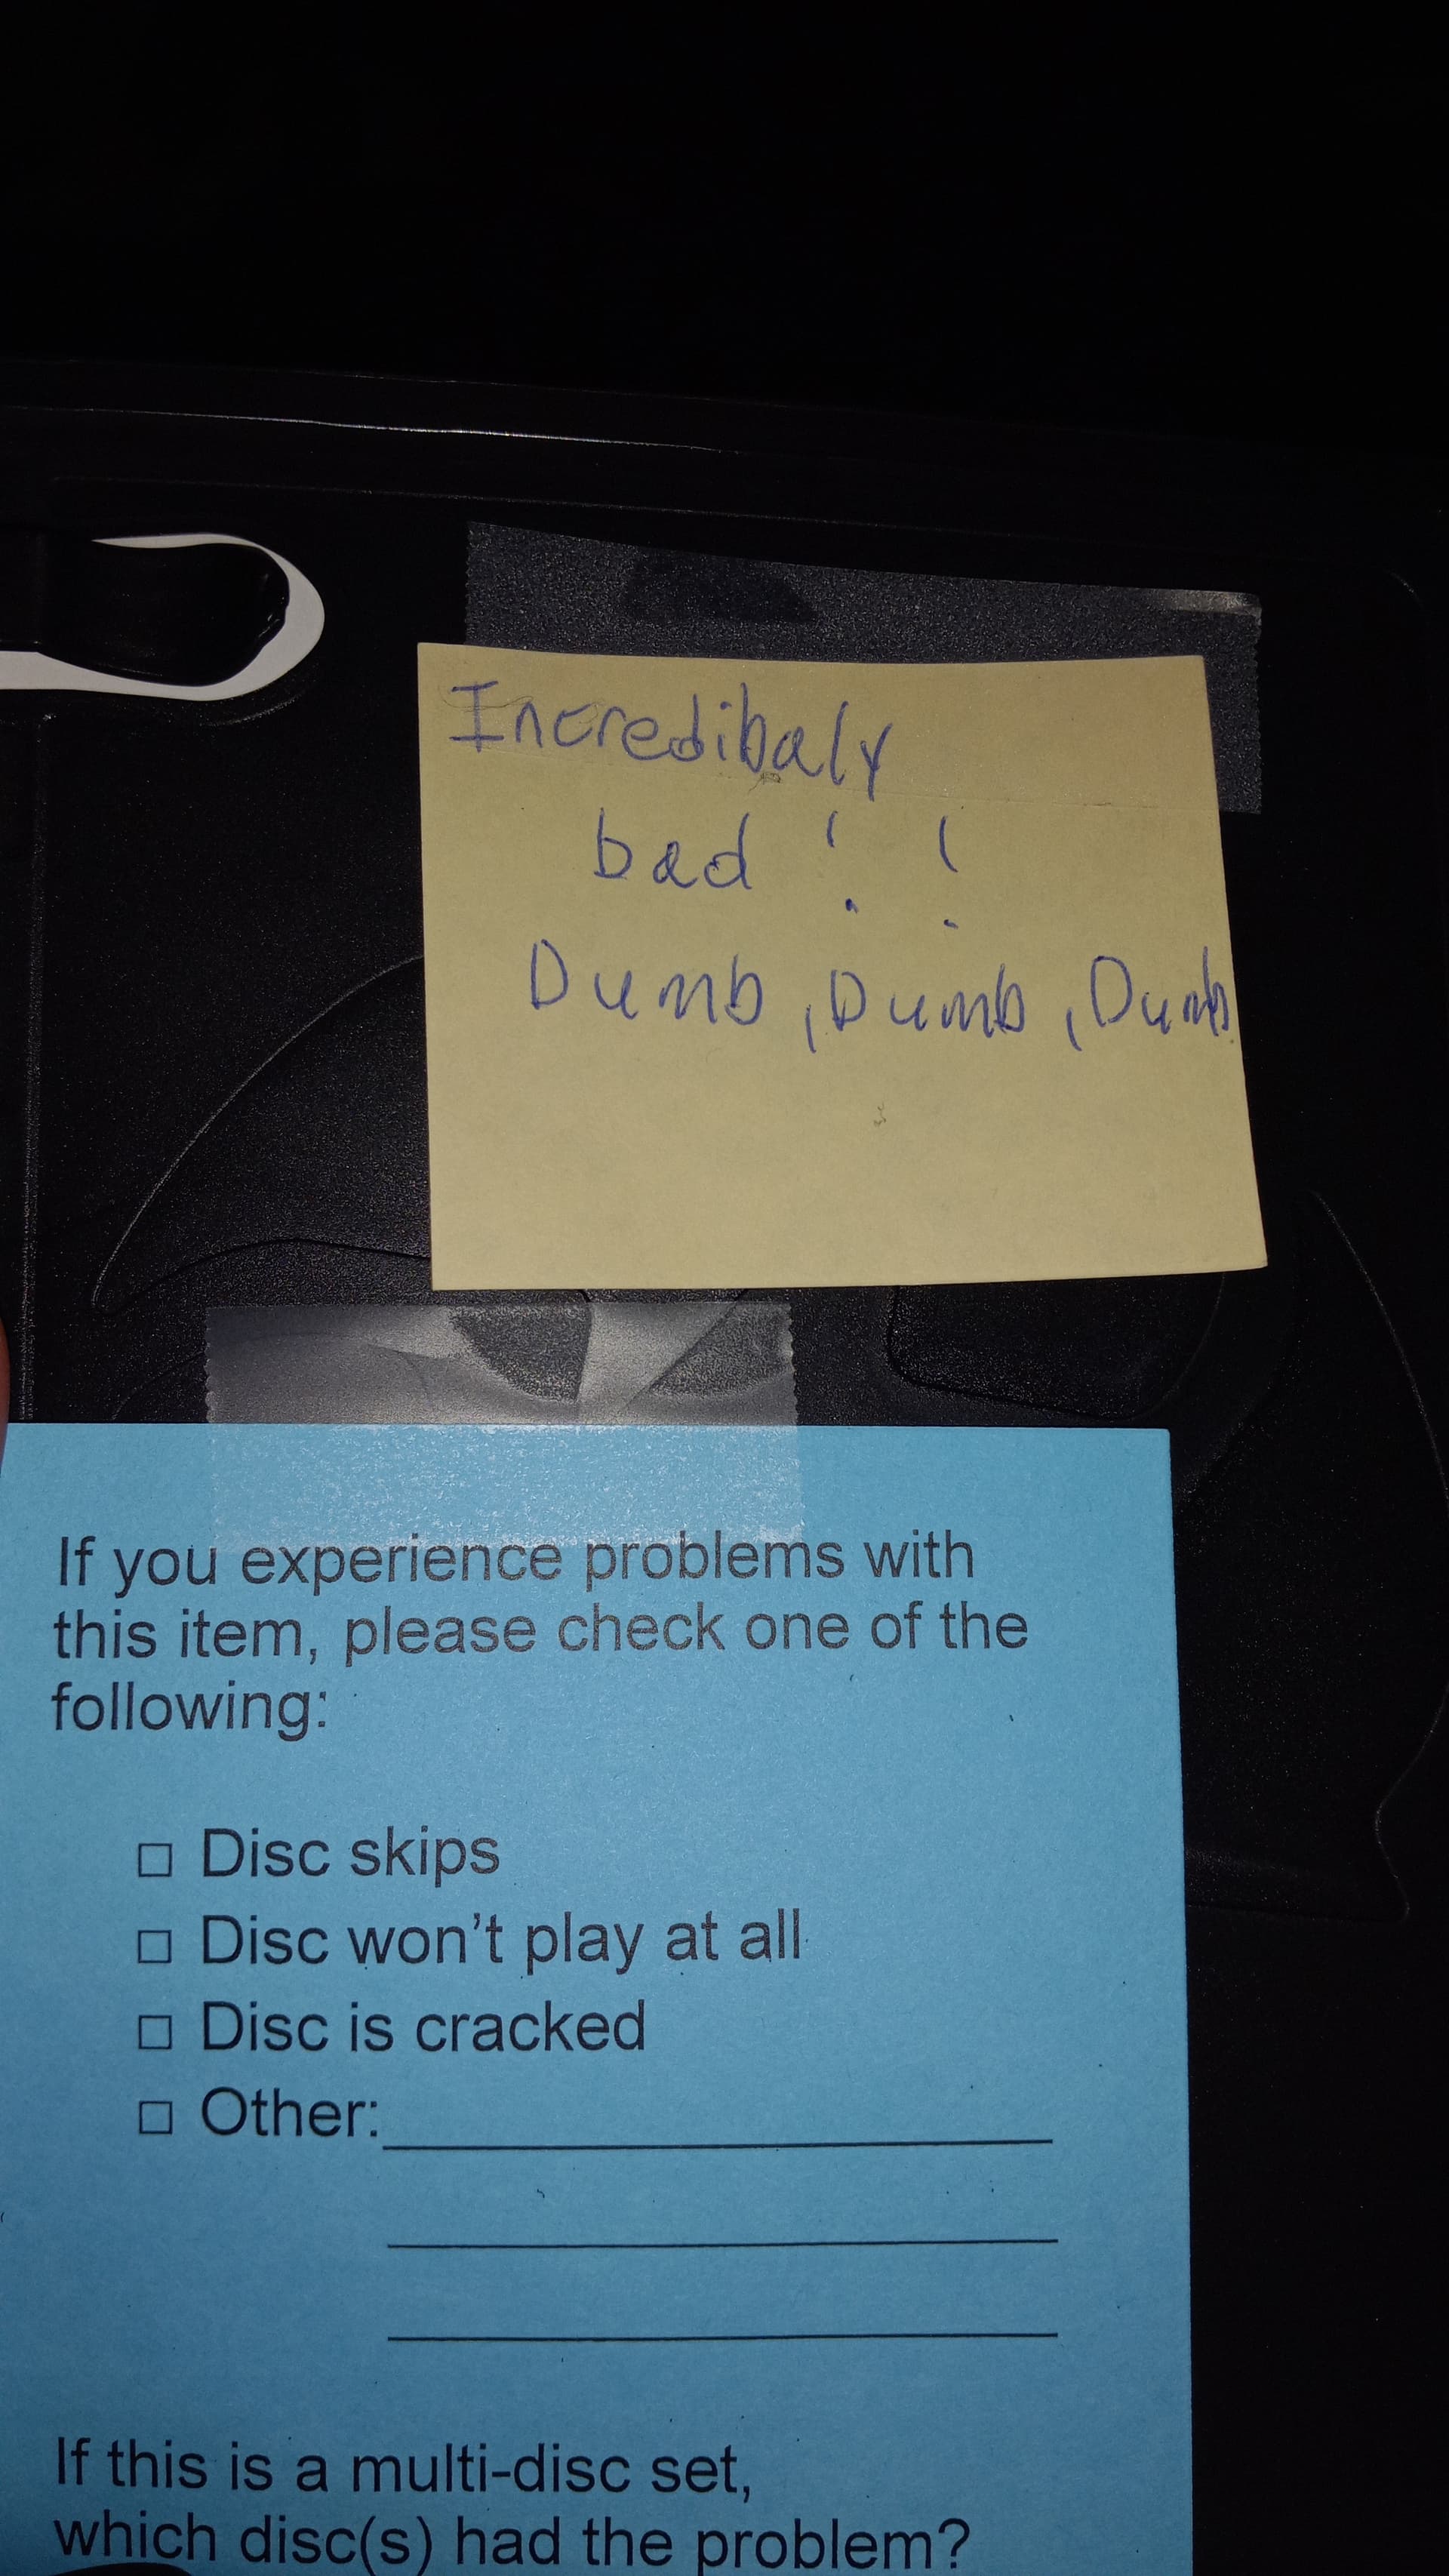 Incredibaly
bad ! !
Dumb, Dumb, Dumb
If you experience problems with
this item, please check one of the
following:
□ Disc skips
□ Disc won't play at all
□ Disc is cracked
□ Other:
If this is a multi-disc set,
which disc(s) had the problem?